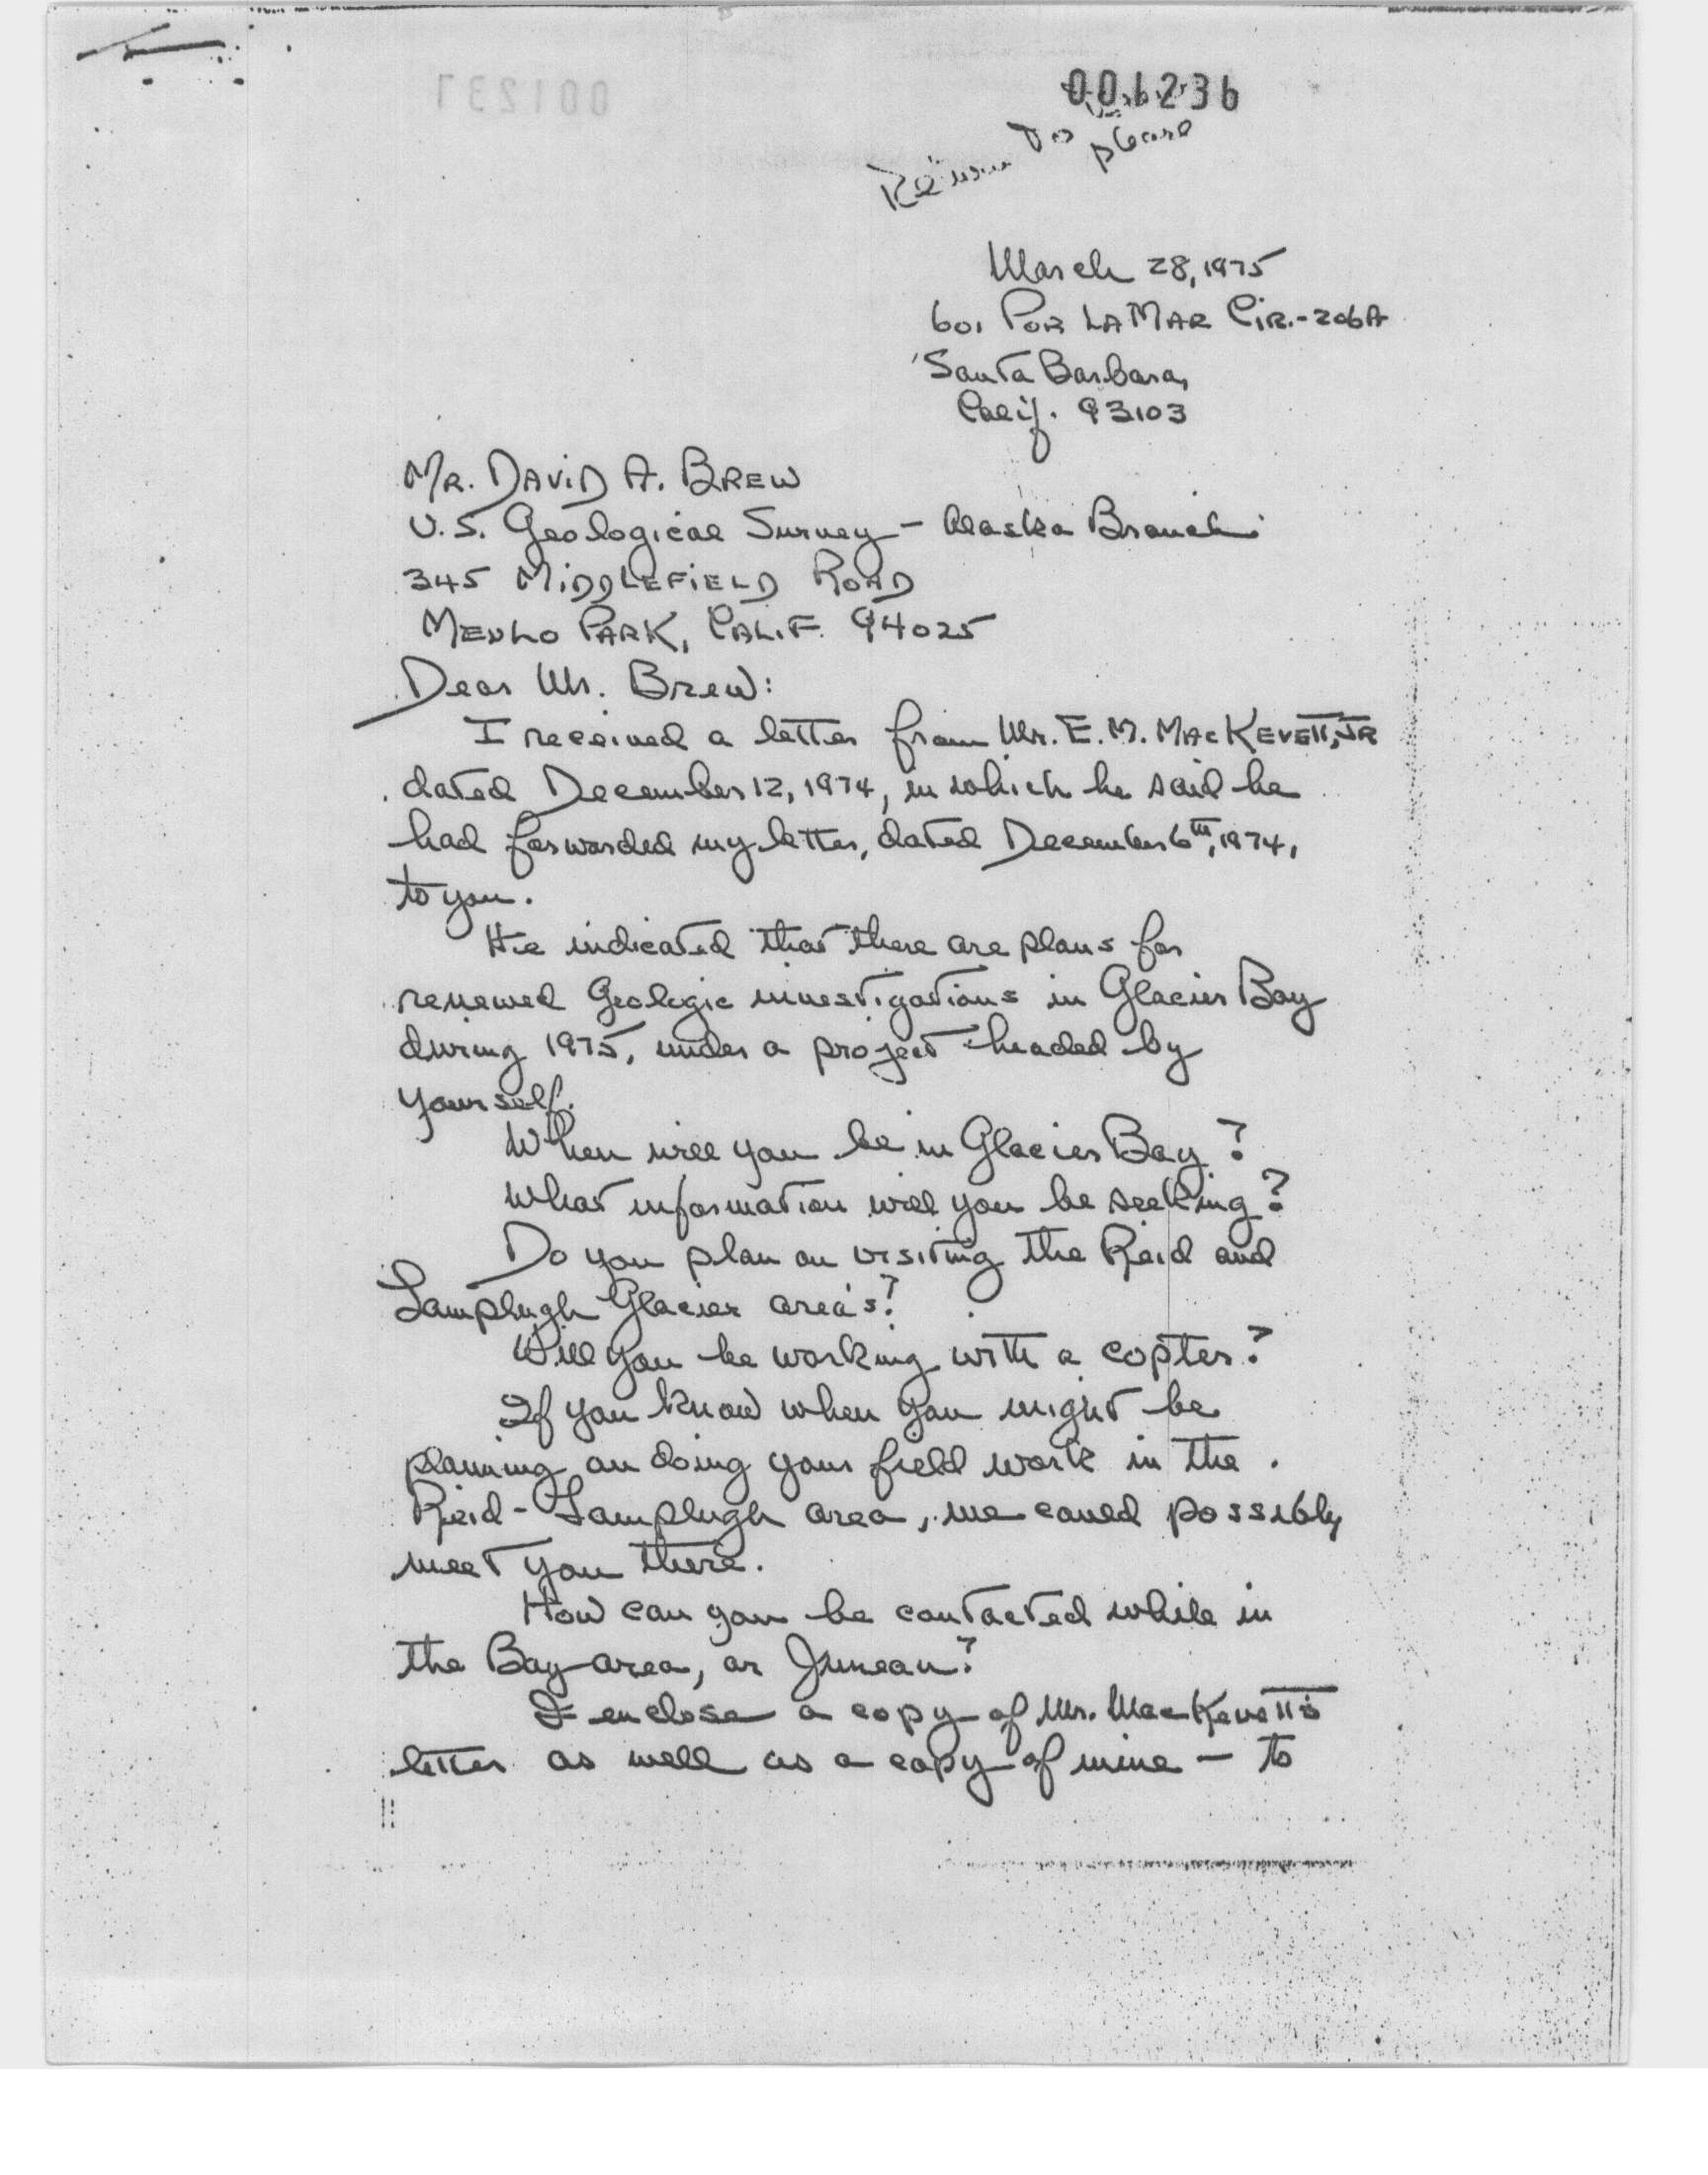 001237
001236
Return to
please
March 28, 1975
601 POR LA MAR CIR.-206A
Santa Barbara,
Calif. 93103
MR. DAVID A. BREW
U.S. Geological Survey - Alaska Branch
345 MIDDLEFIELD ROAD
MENLO PARK, CALIF. 94025
Dear Mr. Brew:
I received a letter from Mr. E.M. MACKEVETT, JR
dated December 12, 1974, in which he said he
had forwarded my letter, dated December 6th, 1974,
to you.
He indicated that there are plans for
renewed Geologic investigations in Glacier Bay
during 1975, under a project headed by
yourself.
When will you be in Glacier Bay?
What information will you be seeking?
Do you plan on visiting the Reid and
Lamplugh Glacier area's?
Will you be working with a copter?
If you know when you might be
planning on doing your field work in the
Reid-Lamplugh area, we could possibly
meet you there.
How can you be contacted while in
the Bay area, or Juneau?
I enclose a copy of Mr. MacKevett's
letter as well as a copy of mine - to